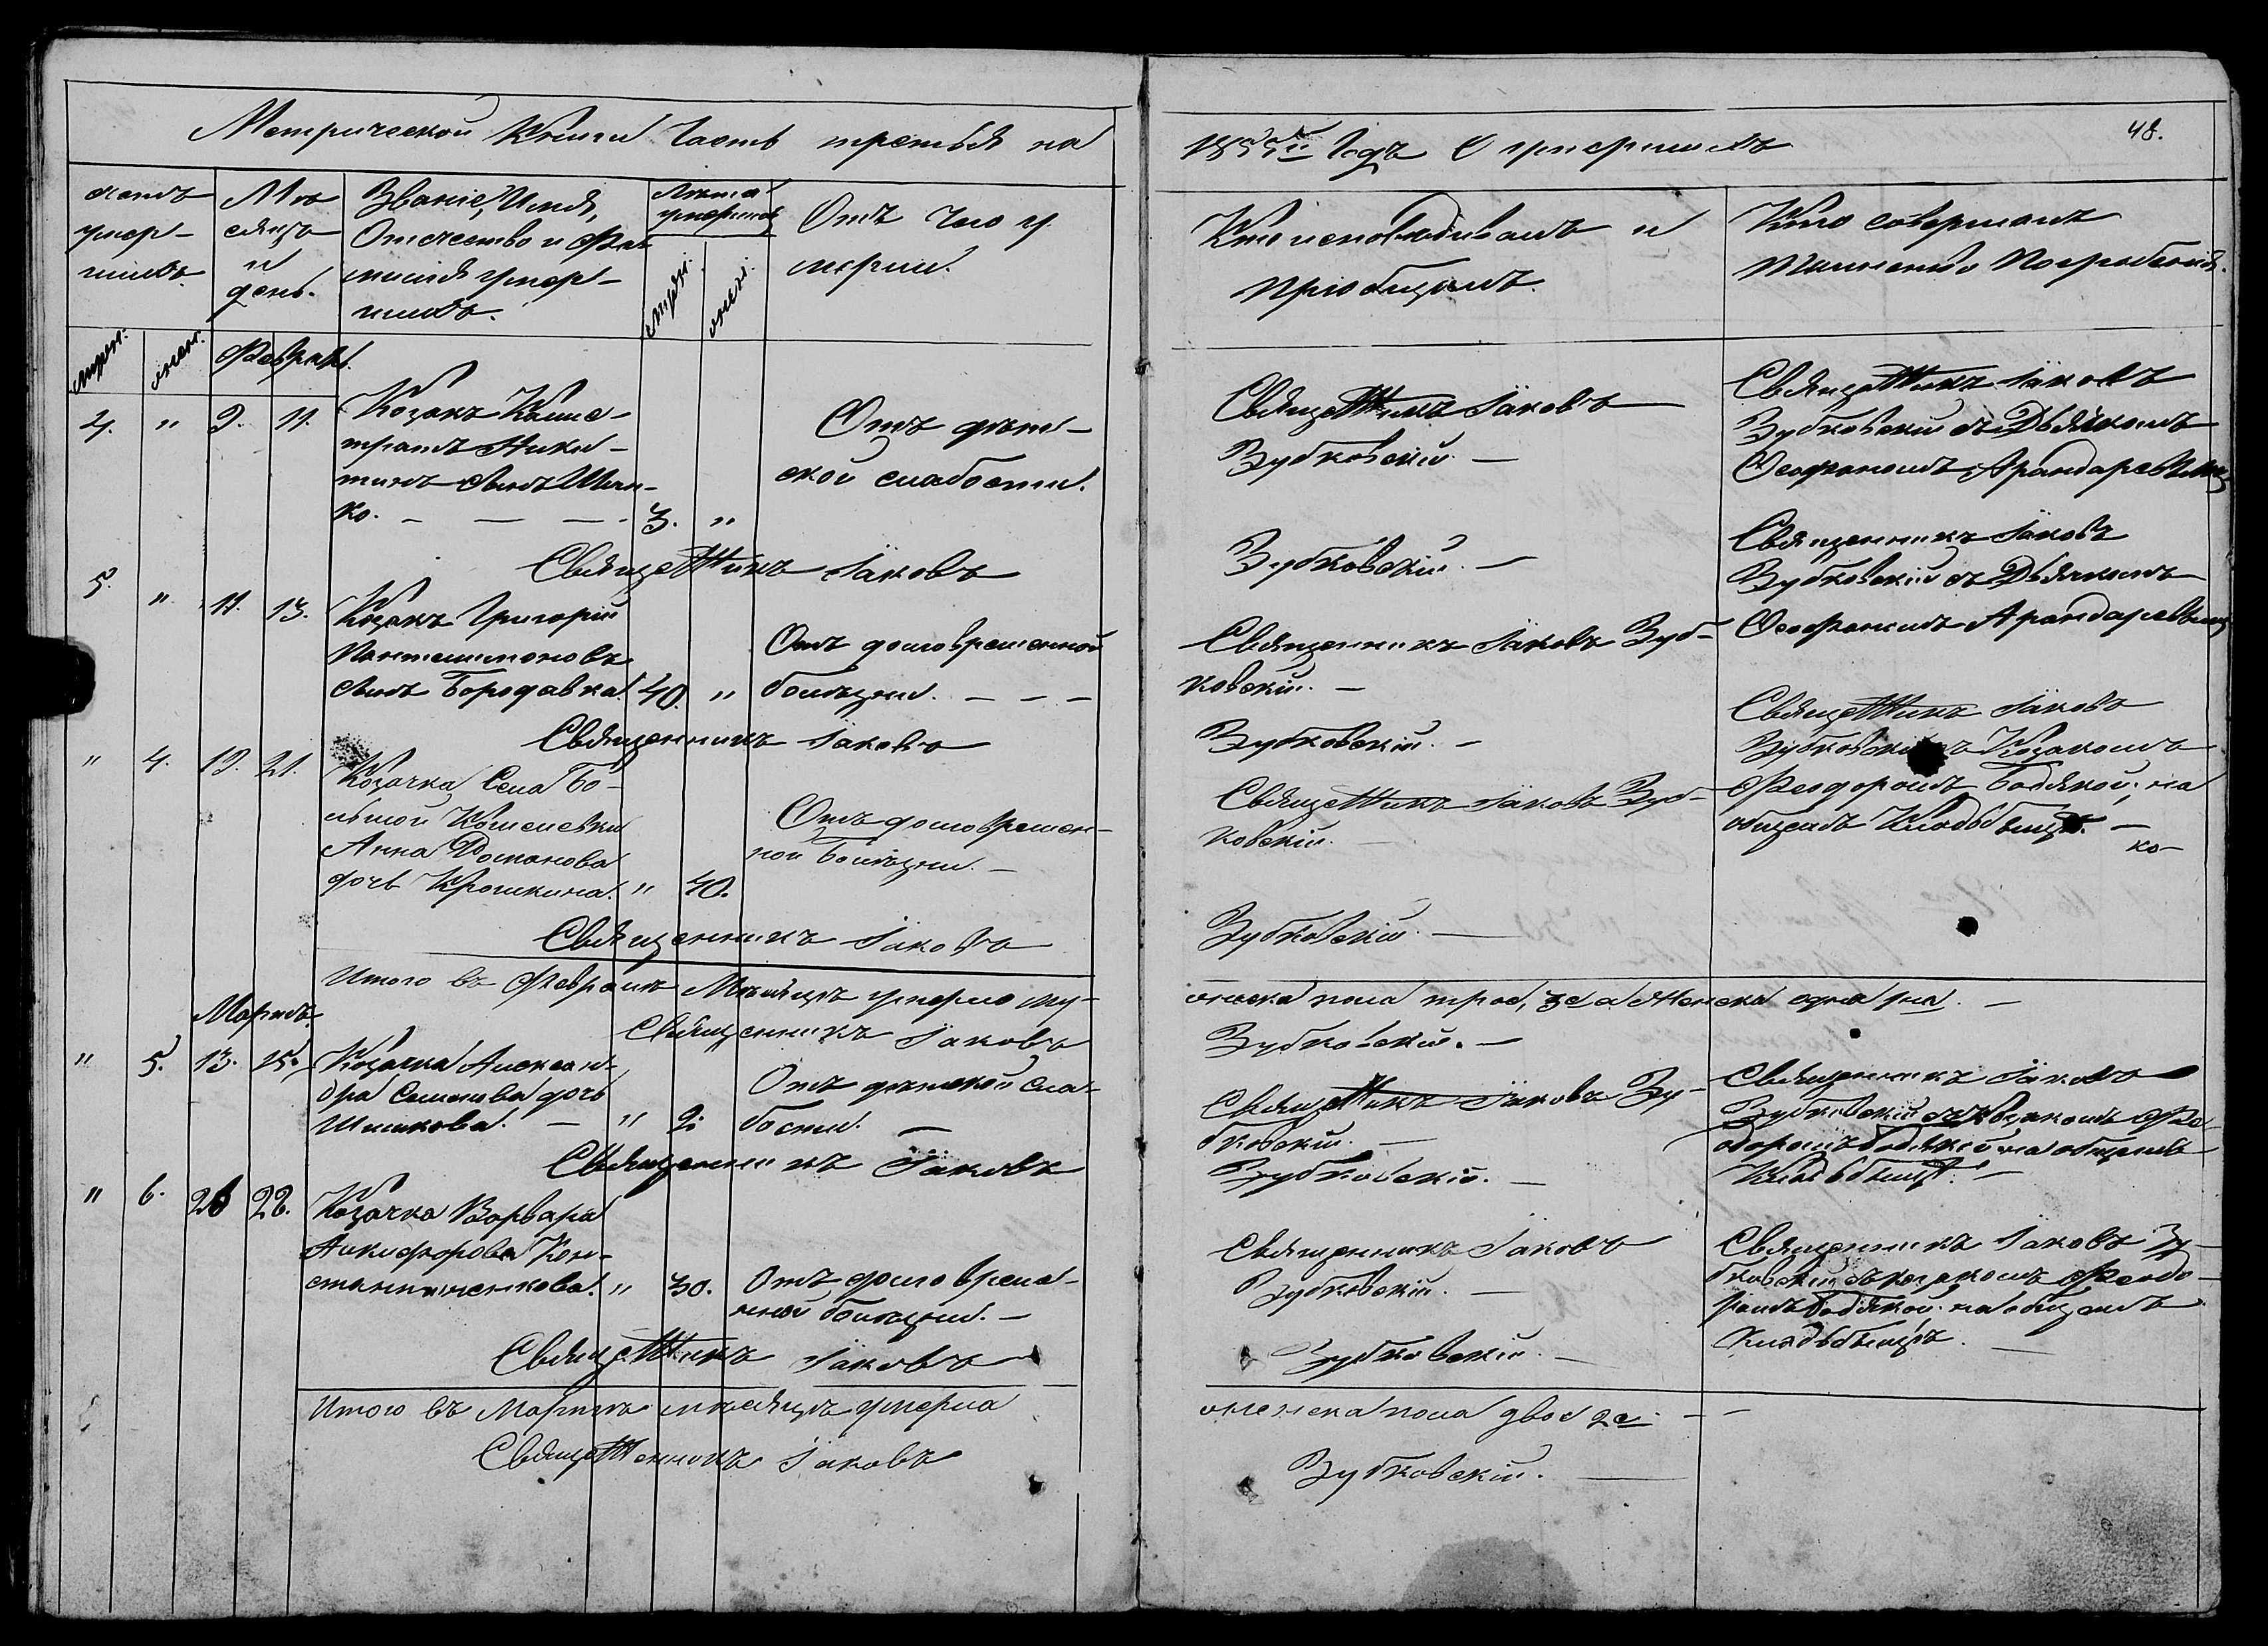 Метрической Книги Часть третья на
1855й Годъ О умершихъ
48.
счетъ умер-шихъ.
Мѣ-сяцъ и день.
Званіе, Имя,
Отечество и Фа-
милія умер-
шихъ.
Лѣта умершихъ
Отъ чего у-
мерли.
Кто исповѣдывалъ и
пріобщалъ.
Кто совершалъ
таинство Погребенія.
мужс: женс:
Февраль.
мужс: женс:
4. " 9. 11.
Козакъ
тратъ Ники-
тинъ сынъ
ко. — — — 3. "
Отъ дѣт-
ской слабости.
Священникъ Іаковъ
Зубковскій. —
Священникъ Іаковъ
Зубковскій съ Дьячкомъ
Ософаномъ
Священникъ Іаковъ
Зубковскій. —
5. " 11. 13.
Козакъ Григорій
Пантелимоновъ
сынъ Бородавка. 40. "
Отъ долговременной
болѣзни. — — —
Священникъ Іаковъ Зуб-
ковскій. —
Священникъ Іаковъ
Зубковскій съ Дьячкомъ
Ософаномъ
Священникъ Іаковъ
Зубковскій. —
" 4. 19. 21.
Козачка Села Бо-
льшой
Анна Романова
дочь Крошкина. " 40.
Отъ долговремен-
ной болѣзни. —
Священникъ Іаковъ Зуб-
ковскій. —
Священникъ Іаковъ
Зубковскій съ Козакомъ
Феодоромъ Бодякой; на
общемъ Кладьбыщѣ. —
Священникъ Іаковъ
Зубковскій. —
Итого въ Февралѣ Мѣсяцѣ умерло му-
жеска пола трое, 3е а Женска одна 1на. —
Священникъ Іаковъ
Зубковскій. —
Мартъ.
" 5. 13. 15.
Козачка Алексан-
дра Семенова дочь
Шишкова. — " 2.
Отъ дѣтской сла-
бости. —
Священникъ Іаковъ Зу-
бковскій. —
Священникъ Іаковъ
Зубковскій съ Козакомъ Фе-
одоромъ Бодякой на общемъ
Кладьбыщѣ. —
Священникъ Іаковъ
Зубковскій. —
" 6. 20 22.
Козачка Варвара
Никифорова Кон-
стантиненкова. " 30.
Отъ долговреме-
нной болѣзни. —
Священникъ Іаковъ
Зубковскій. —
Священникъ Іаковъ Зу-
бковскій съ козакомъ Феодо-
ромъ Бодякой на общемъ
Кладьбыщѣ. —
Священникъ Іаковъ
Зубковскій. —
Итого въ Мартѣ мѣсяцѣ умерла
женска пола двое 2е. — —
Священникъ Іаковъ
Зубковскій. —